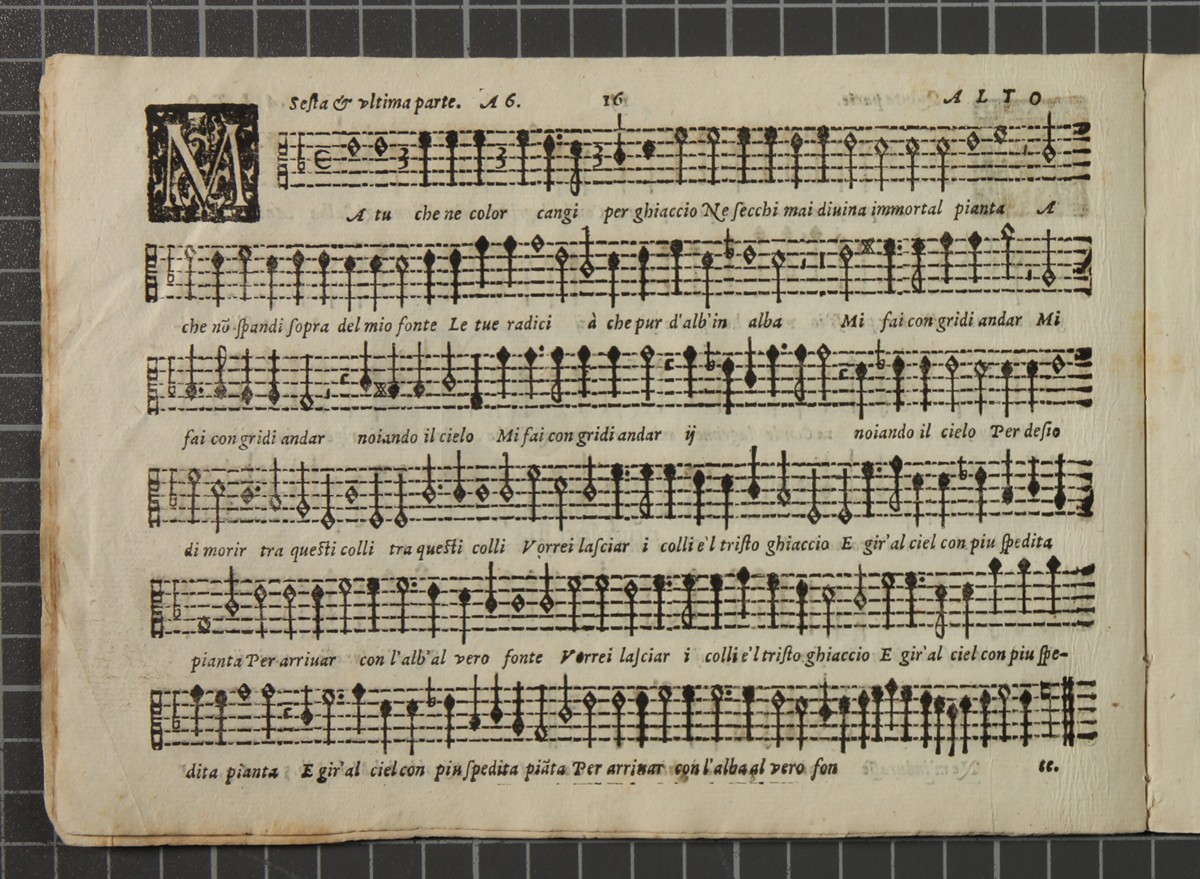 Sesta & vltima parte. A 6. 16 ALTO
M A tu che ne color cangi per ghiaccio Ne secchi mai diuina immortal pianta A
che nõ spandi sopra del mio fonte Le tue radici à che pur d'alb'in alba Mi fai con gridi andar Mi
fai con gridi andar noiando il cielo Mi fai con gridi andar ij noiando il cielo Per desio
di morir tra questi colli tra questi colli Vorrei lasciar i colli e'l tristo ghiaccio E gir'al ciel con piu spedita
pianta Per arriuar con l'alb'al vero fonte Vorrei lasciar i colli e'l tristo ghiaccio E gir'al ciel con piu spe-
dita pianta E gir'al ciel con piu spedita piãta Per arriuar con l'alba al vero fon te.